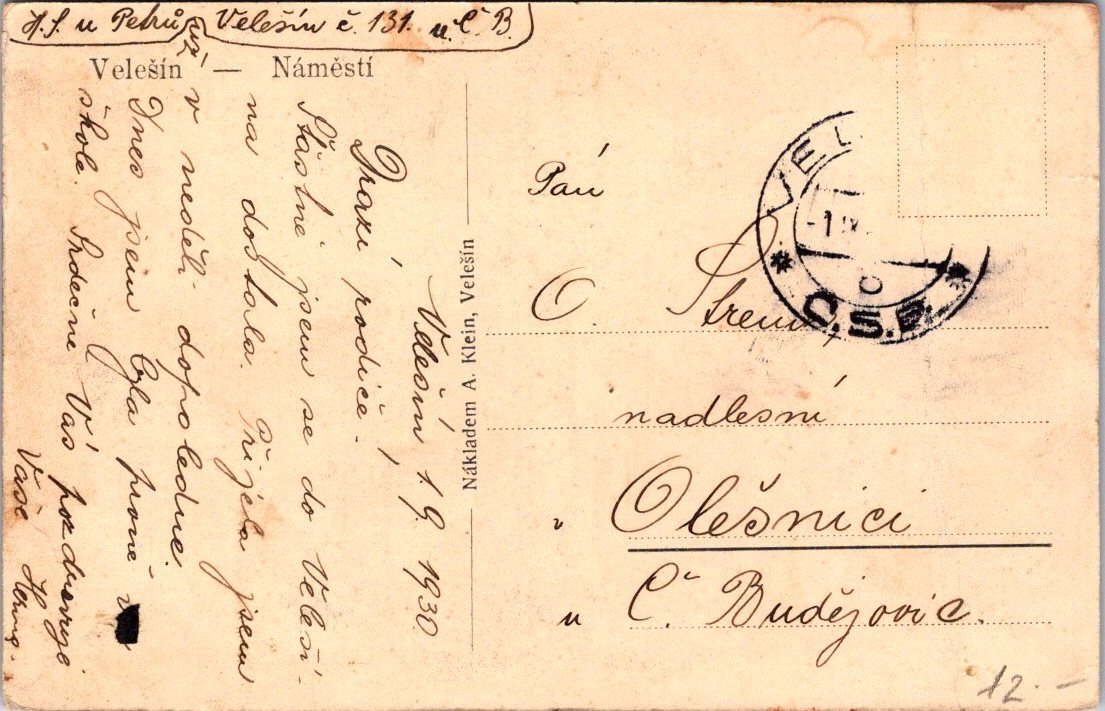 H. S. u Petrů Velešín č. 131. u Č. B.
Velešín — Náměstí
Velešín, 1 9. 1930
Drazí rodiče.
Šťastně jsem se do Veleší-
na dostala. Přijela jsem
už v neděli dopoledne
Dnes jsem byla prvně v
škole. Srdečně Vás pozdravuje
Vaše
Nákladem A. Klein, Velešín
Pán
O.
nadlesní
v Olešnici
u Č. Budějovic.
VEL
-1 IX
Č.S.B.
12.-